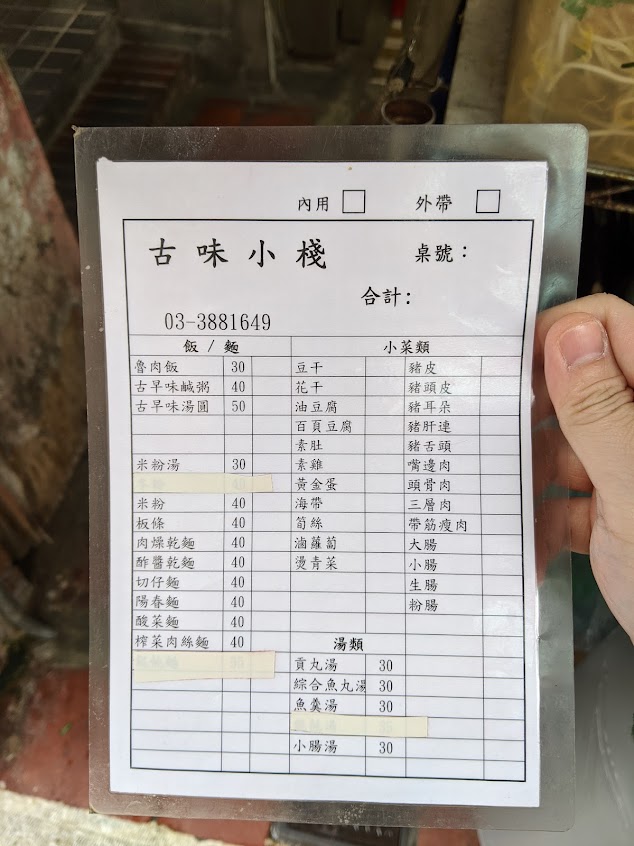 內用 □ 外帶 □
古味小棧 桌號：
合計：
03-3881649
飯 / 麵
魯肉飯 30
古早味鹹粥 40
古早味湯圓 50
米粉湯 30
米粉 40
板條 40
肉燥乾麵 40
酢醬乾麵 40
切仔麵 40
陽春麵 40
酸菜麵 40
榨菜肉絲麵 40
小菜類
豆干
花干
油豆腐
百頁豆腐
素肚
素雞
黃金蛋
海帶
筍絲
滷蘿蔔
燙青菜
豬皮
豬頭皮
豬耳朵
豬肝連
豬舌頭
嘴邊肉
頭骨肉
三層肉
帶筋瘦肉
大腸
小腸
生腸
粉腸
湯類
貢丸湯 30
綜合魚丸湯 30
魚羹湯 30
小腸湯 30